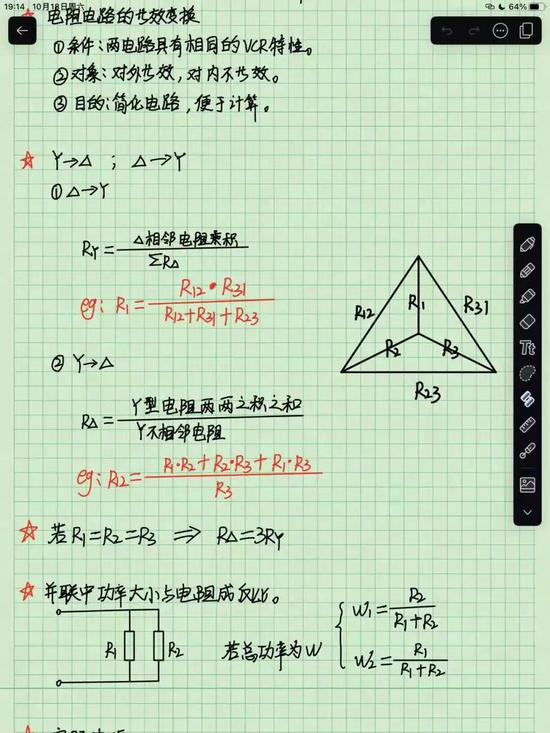 19:14 10月18日周六
64%
电阻电路的等效变换
①条件:两电路具有相同的VCR特性。
②对象:对外等效,对内不等效。
③目的:简化电路,便于计算。
Y→△ ; △→Y
①△→Y
RY=△相邻电阻乘积/ΣR△
eg: R1=R12•R31/R12+R31+R23
R12
R1
R31
R2
R3
R23
②Y→△
R△=Y型电阻两两之积之和/Y不相邻电阻
eg: R12=R1·R2+R2·R3+R1·R3/R3
若R1=R2=R3 ⇒ R△=3RY
并联中功率大小与电阻成反比。
R1
R2
若总功率为W
W1=R2/R1+R2
W2=R1/R1+R2
Tt